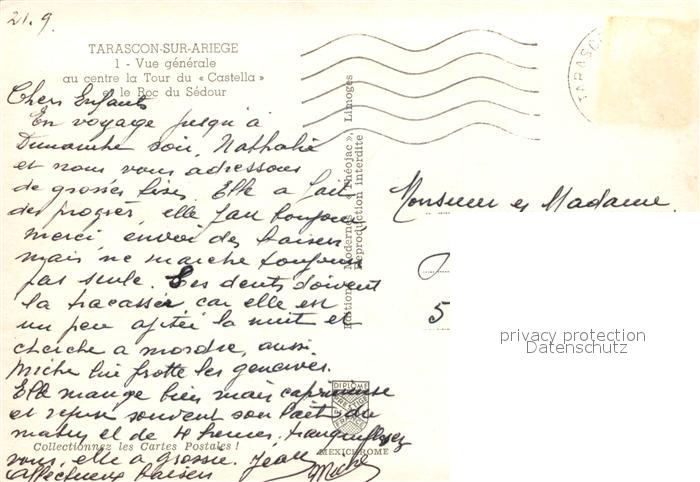 21.9.
TARASCON-SUR-ARIEGE
1 - Vue générale
au centre la Tour du « Castella »
le Roc du Sédour
Chers Enfants
En voyage jusqu'à
Dimanche soir, Nathalie
et nous vous adressons
de grosses bises. Elle a fait
des progrès, elle fait toujours
merci, envoi des baisers
mais ne marche toujours
pas seule. Ses dents doivent
la tracasser car elle est
un peu agitée la nuit et
cherche a mordre, aussi
Miche lui frotte les gencives.
Elle mange bien mais capricieuse
et refuse souvent son lait du
matin et de 4 heures, tranquillisez
vous, elle a grossie. Jean
Affectueux baisers Miche
Collectionnez les Cartes Postales !
Editions Modernes « Théojac », Limoges
Reproduction interdite
DIPLOME
PRESTIGE
DE
FRANCE
MEXICHROME
TARASC
Monsieur et Madame
5
privacy protection
Datenschutz